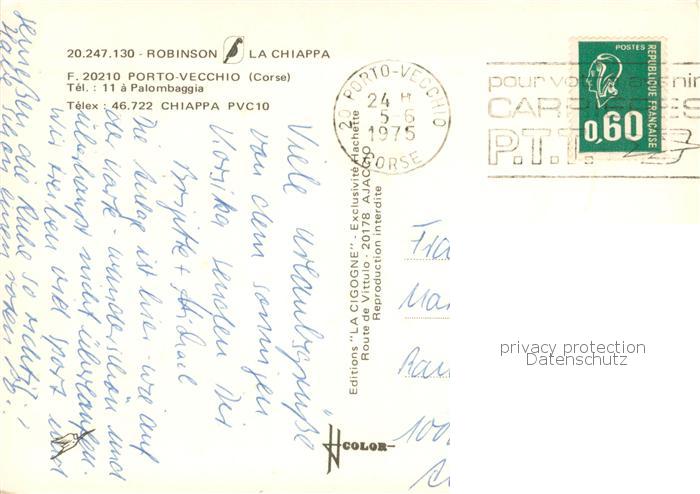 20.247.130 - ROBINSON LA CHIAPPA
F. 20210 PORTO-VECCHIO (Corse)
Tél. : 11 à Palombaggia
Télex : 46.722 CHIAPPA PVC10
20 PORTO-VECCHIO
24 H
5-6
1975
CORSE
pour vo
CARRIERES
P.T.T.
POSTES
REPUBLIQUE FRANÇAISE
0,60
Viele Urlaubsgrüße
von dem sonnigen
Korsika senden Dir
Brigitte +
Die Anlage ist hier - wie auf
der Karte - wunderschön und
überhaupt nicht überlaufen.
Wir treiben viel Sport und
genießen die Ruhe so richtig.
Habe schon einen
Editions "LA CIGOGNE" - Exclusivité Hachette
Route de Vittulo - 20178 AJACCIO
Reproduction interdite
COLOR
Fra
Ma
100
privacy protection
Datenschutz